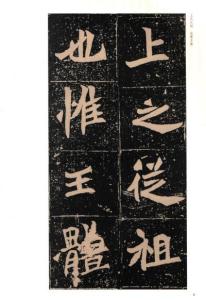 上之從祖
也惟王體